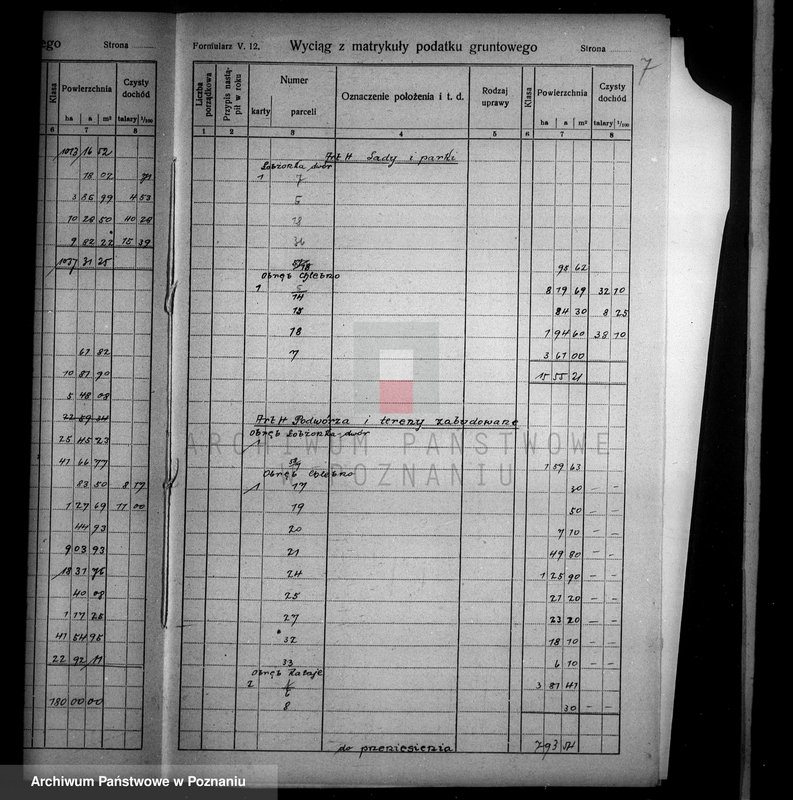 ego Strona
Klasa Powierzchnia Czysty dochód
ha a m² talary 1/100
6 7 8
1073 16 52
18 02 71
3 86 99 4 53
10 28 50 40 28
9 82 22 15 39
1037 31 25
67 82
10 87 90
5 48 08
22 89 34
25 45 23
41 66 77
83 50 8 17
1 27 69 11 00
44 93
9 03 93
18 31 76
40 08
1 17 25
41 54 95
22 92 11
180 00 00
7
Formularz V. 12. Wyciąg z matrykuły podatku gruntowego Strona
Liczba porządkowa Przypis nastąpił w roku Numer karty parceli Oznaczenie położenia i t. d. Rodzaj uprawy Klasa Powierzchnia ha a m² Czysty dochód talary 1/100
1 2 3 4 5 6 7 8
Art H Sady i parki
Łobżonka dwór
1 7
5
18
36
98 62
Obręb Chlebno
1 5/14 8 19 69 32 10
15 84 30 8 25
18 7 94 60 38 10
7 3 67 00
15 55 21
Art H Podwórza i tereny zabudowane
Obręb Łobżonka-dwór
1
1 59 63
Obręb Chlebno
1 17 30 — —
19 50 — —
20 7 10 — —
21 49 80 — —
24 1 25 90 — —
25 21 20 — —
27 23 20 — —
32 18 10 — —
33 6 10 — —
Obręb Rataje
2 1/6 3 87 41
8 30 — —
do przeniesienia 7 93 54
ARCHIWUM PAŃSTWOWE
W POZNANIU
Archiwum Państwowe w Poznaniu